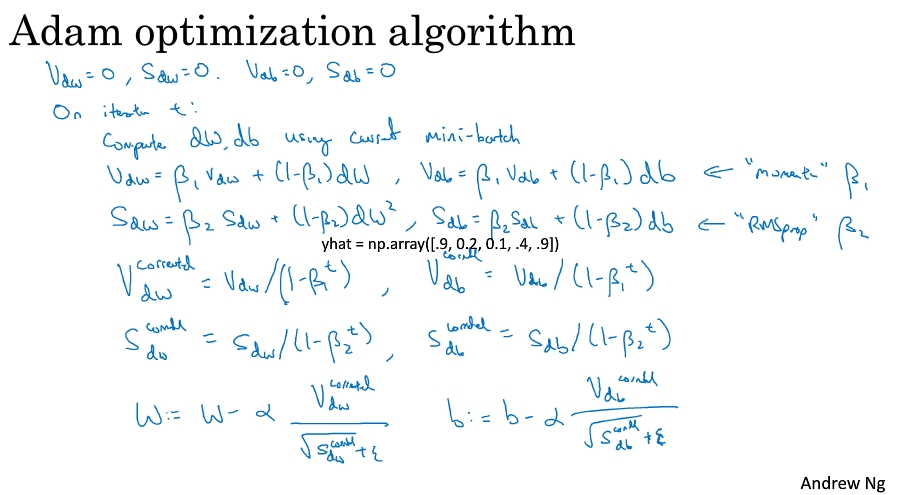 Adam optimization algorithm
V_dw = 0, S_dw = 0. V_db = 0, S_db = 0
On iteration t:
Compute dW, db using current mini-batch
V_dw = β₁ V_dw + (1-β₁) dW, V_db = β₁ V_db + (1-β₁) db ← "momentum" β₁
S_dw = β₂ S_dw + (1-β₂) dW², S_db = β₂ S_db + (1-β₂) db ← "RMSprop" β₂
yhat = np.array([.9, 0.2, 0.1, .4, .9])
V_dw^corrected = V_dw/(1-β₁^t), V_db^corrected = V_db/(1-β₁^t)
S_dw^corrected = S_dw/(1-β₂^t), S_db^corrected = S_db/(1-β₂^t)
W := W - α V_dw^corrected / √S_dw^corrected + ε b := b - α V_db^corrected / √S_db^corrected + ε
Andrew Ng